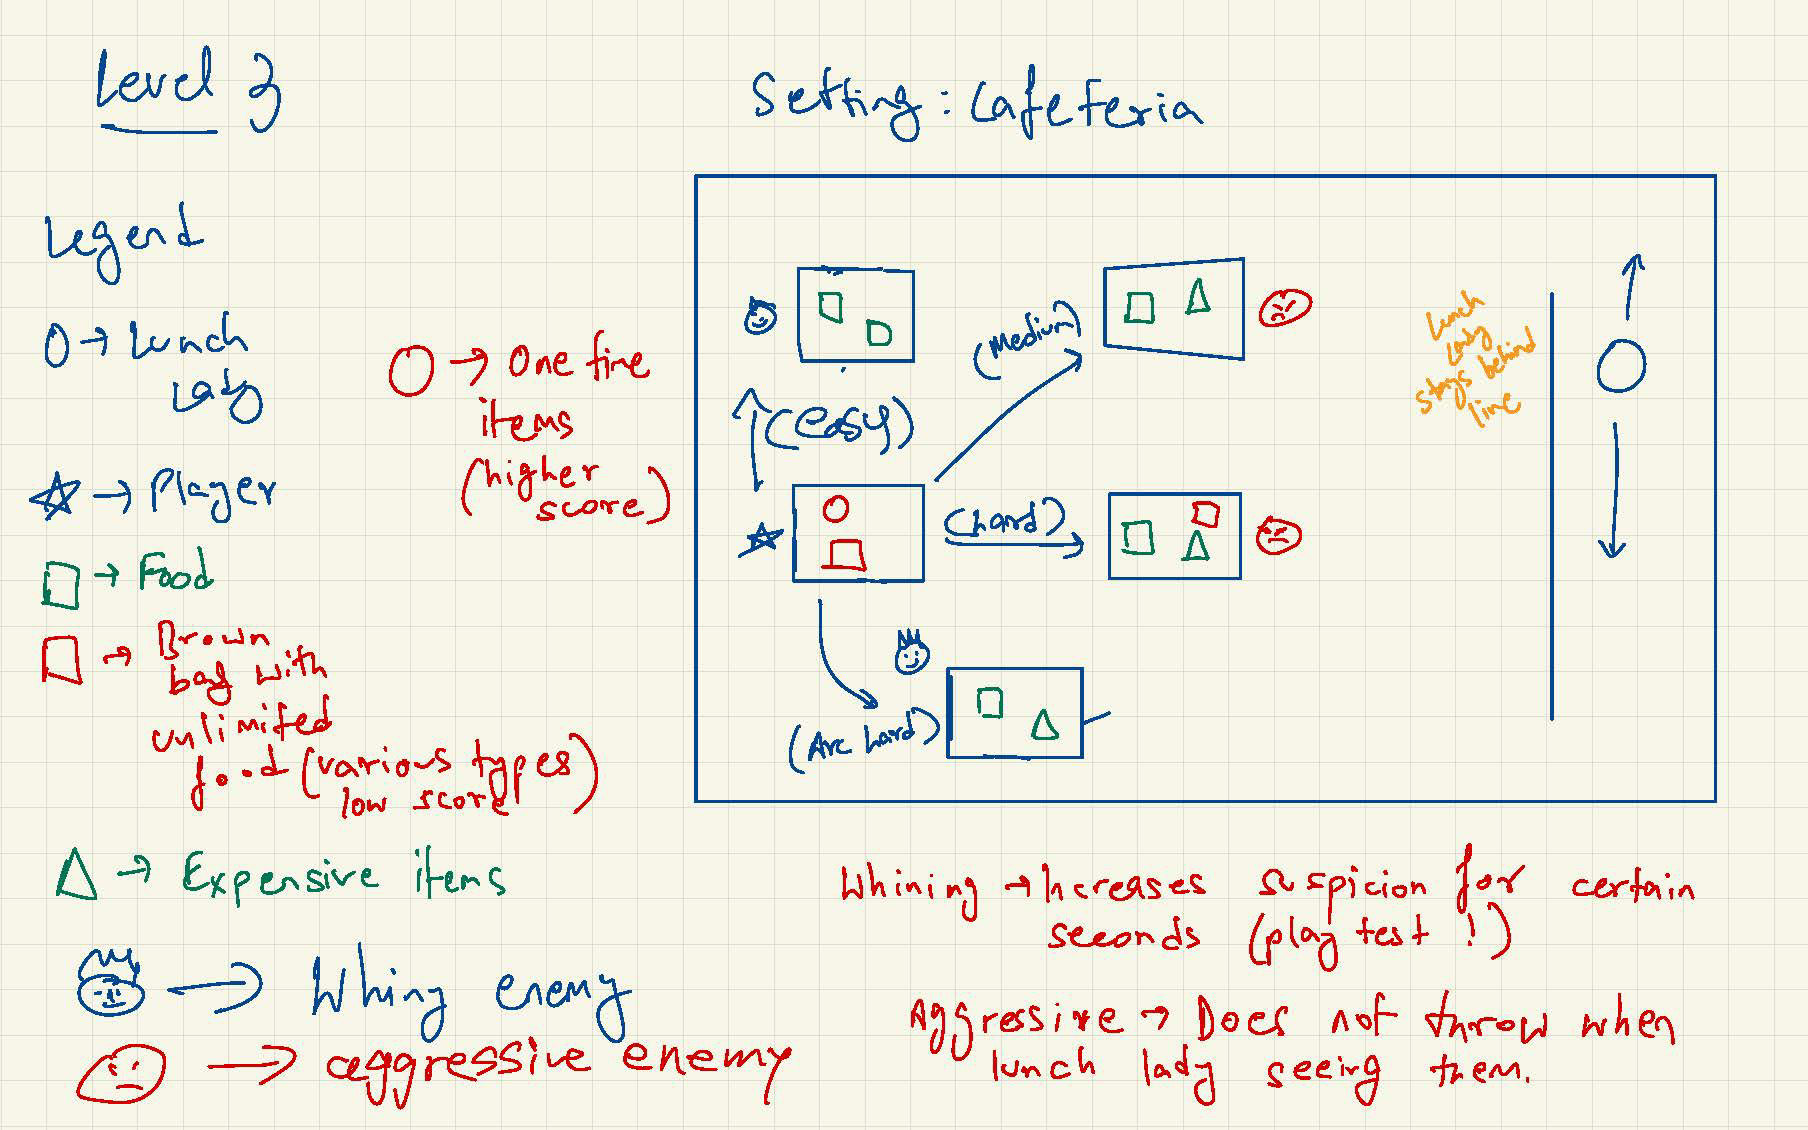 Level 3
Setting: Cafeteria
Legend
→ Lunch
Lady
→ One time
items
(higher
score)
→ Player
→ Food
→ Brown
bag with
unlimited
food (various types
low score)
→ Expensive items
→ Whing enemy
→ aggressive enemy
(Medium)
(easy)
(hard)
(Arc hard)
Lunch
Lady
stays behind
line
Whining → Increases suspicion for certain
seconds (play test !)
Aggressive → Does not throw when
lunch lady seeing them.